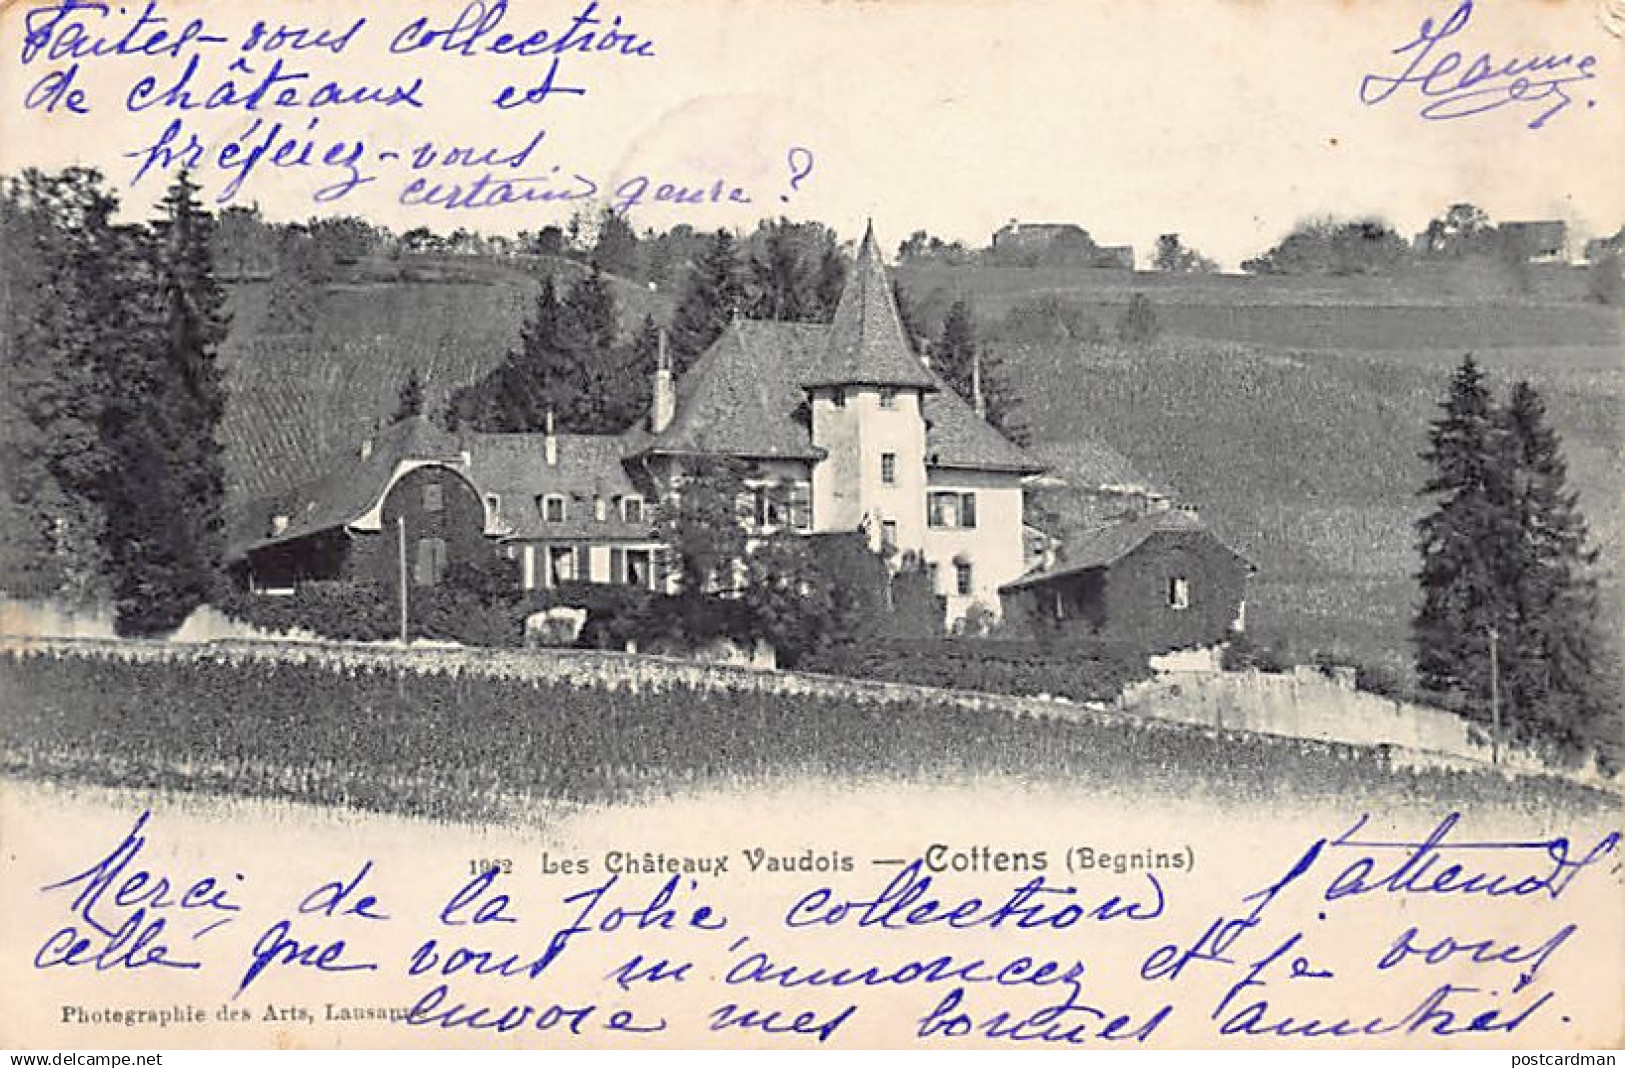 Faites-vous collection
de châteaux et
préférez-vous
certain genre ?
Jeanne
1962 Les Châteaux Vaudois — Cottens (Begnins)
Merci de la jolie collection j'attend
celle que vous m'annoncez et je vous
envoie mes bonnes amitiés.
Photographie des Arts, Lausanne
www.delcampe.net
postcardman